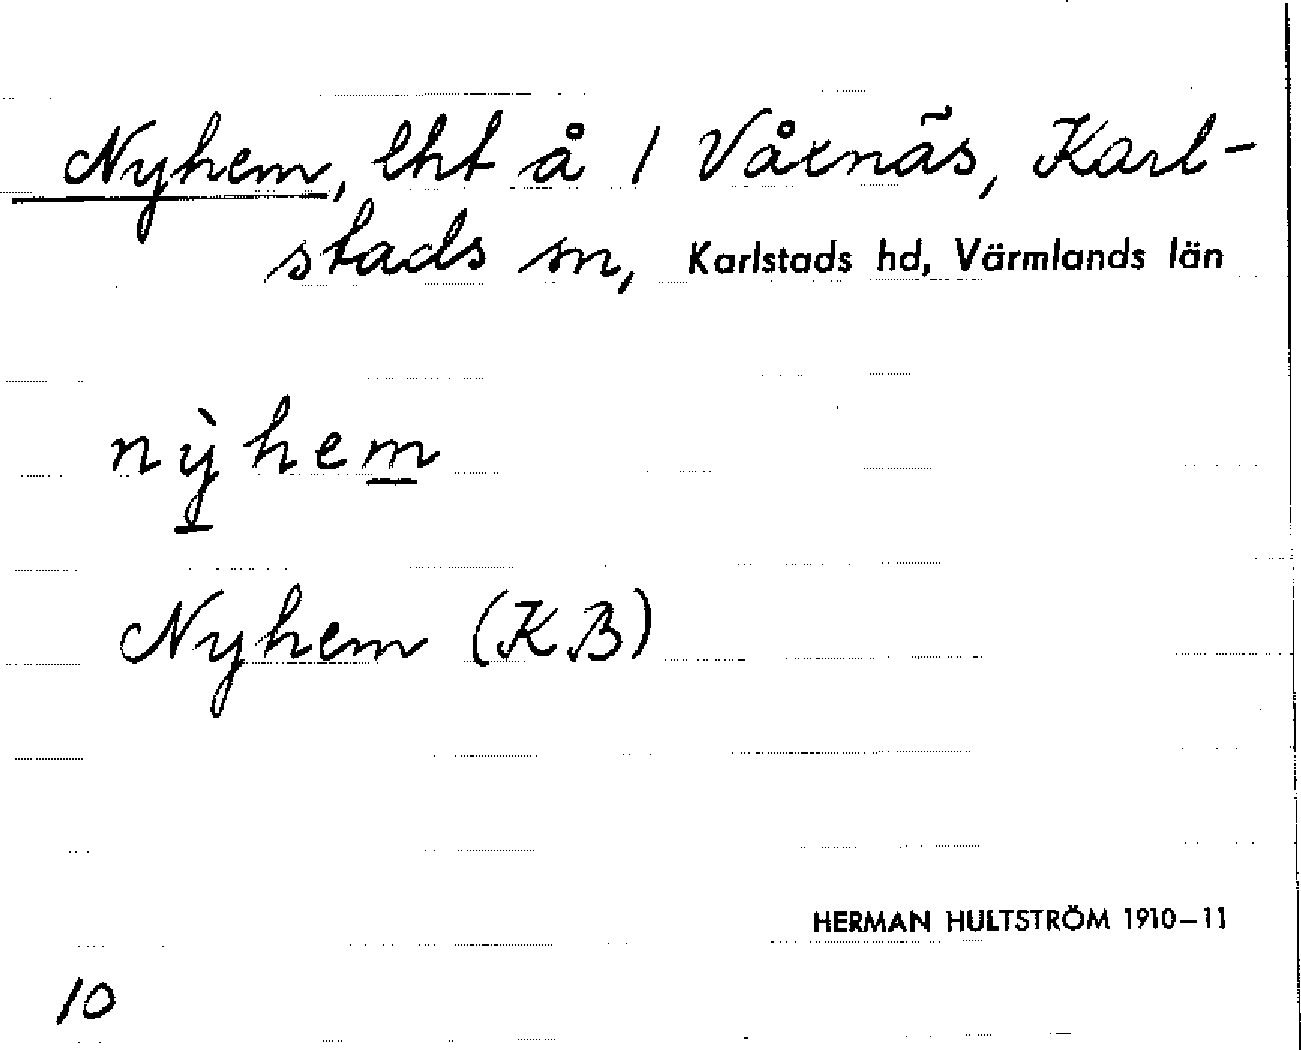 Nyhem, lht å 1 Våxnäs, Karl-
stads sn, Karlstads hd, Värmlands län
nỳhem
Nyhem (KB)
HERMAN HULTSTRÖM 1910–11
10